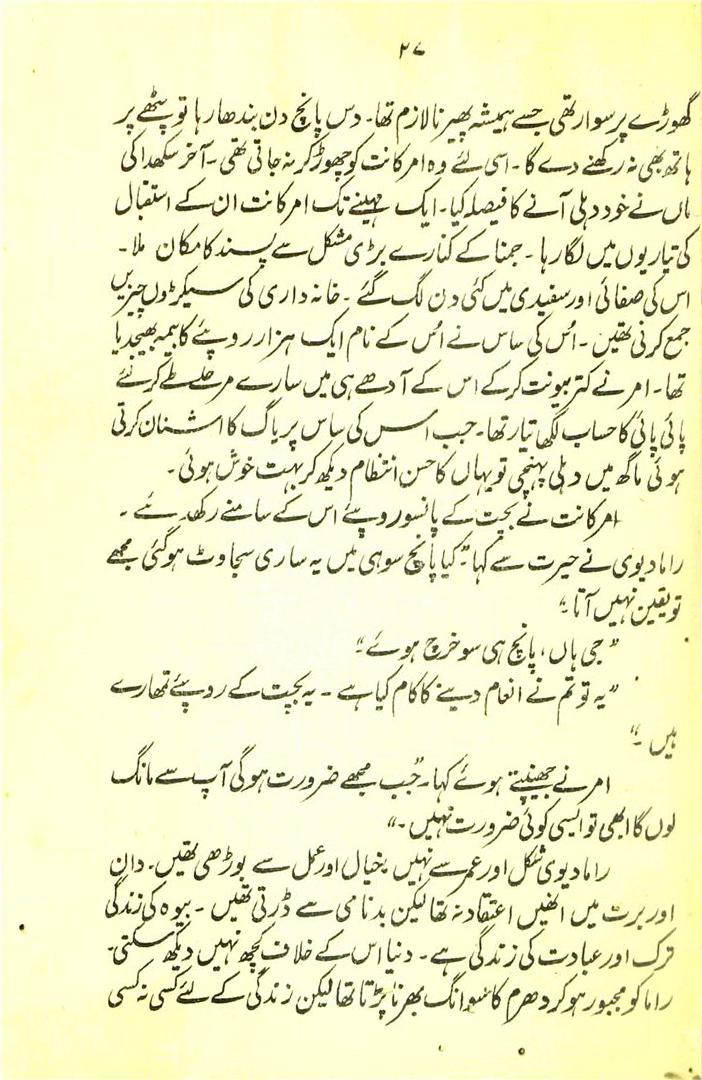 ۲۷
گھوڑے پر سوار تھی جسے ہمیشہ پھیرنا لازم تھا۔ دس پانچ دن بندھا رہا تو پٹھے پر
ہاتھ بھی نہ رکھنے دے گا۔ اسی لئے وہ امرکانت کو چھوڑ کر نہ جاتی تھی۔ آخر سکھدا کی
ماں نے خود دہلی آنے کا فیصلہ کیا۔ ایک مہینے تک امرکانت ان کے استقبال
کی تیاریوں میں لگا رہا۔ جمنا کے کنارے بڑی مشکل سے پسند کا مکان ملا۔
اس کی صفائی اور سفیدی میں کئی دن لگ گئے۔ خانہ داری کی سیکڑوں چیزیں
جمع کرنی تھیں۔ اُس کی ساس نے اُس کے نام ایک ہزار روپئے کا بیمہ بھیجدیا
تھا۔ امر نے کتربیونت کر کے اس کے آدھے ہی میں سارے مرحلے طے کر لئے
پائی پائی کا حساب لکھا تیار تھا۔ جب اس کی ساس پریاگ کا اشنان کرتی
ہوئی ماگھ میں دہلی پہنچی تو یہاں کا حسن انتظام دیکھ کر بہت خوش ہوئی۔
امرکانت نے بچت کے پانسو روپئے اس کے سامنے رکھ دئے۔
راما دیوی نے حیرت سے کہا۔ "کیا پانچ سو ہی میں یہ ساری سجاوٹ ہو گئی مجھے
تو یقین نہیں آتا۔"
"جی ہاں، پانچ ہی سو خرچ ہوئے۔"
"یہ تو تم نے انعام دینے کا کام کیا ہے۔ یہ بچت کے روپئے تمھارے
ہیں۔"
امر نے جھینپتے ہوئے کہا۔ "جب مجھے ضرورت ہوگی آپ سے مانگ
لوں گا ابھی تو ایسی کوئی ضرورت نہیں۔"
راما دیوی شکل اور عمر سے نہیں خیال اور عمل سے بوڑھی تھیں۔ دان
اور برت میں انھیں اعتقاد نہ تھا لیکن بدنامی سے ڈرتی تھیں۔ بیوہ کی زندگی
ترک اور عبادت کی زندگی ہے۔ دنیا اس کے خلاف کچھ نہیں دیکھ سکتی۔
راما کو مجبور ہو کر دھرم کا سوانگ بھرنا پڑتا تھا لیکن زندگی کے لئے کسی نہ کسی